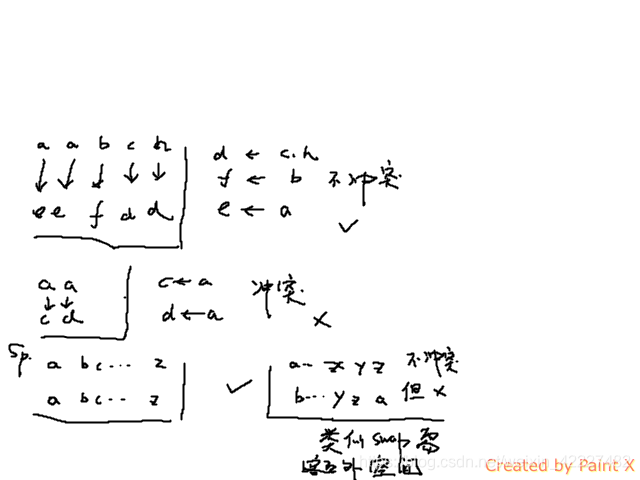 a a b c h
d ← c.h
↓ ↓ ↓ ↓ ↓
f ← b 不冲突
e e f d d
e ← a
✓
a a
c ← a 冲突
↓ ↓
c d
d ← a ×
Sp. a b c ... z
a b c ... z
✓
a... x y z 不冲突
b... y z a 但 ×
类似 swap 需
额外空间
Created by Paint X